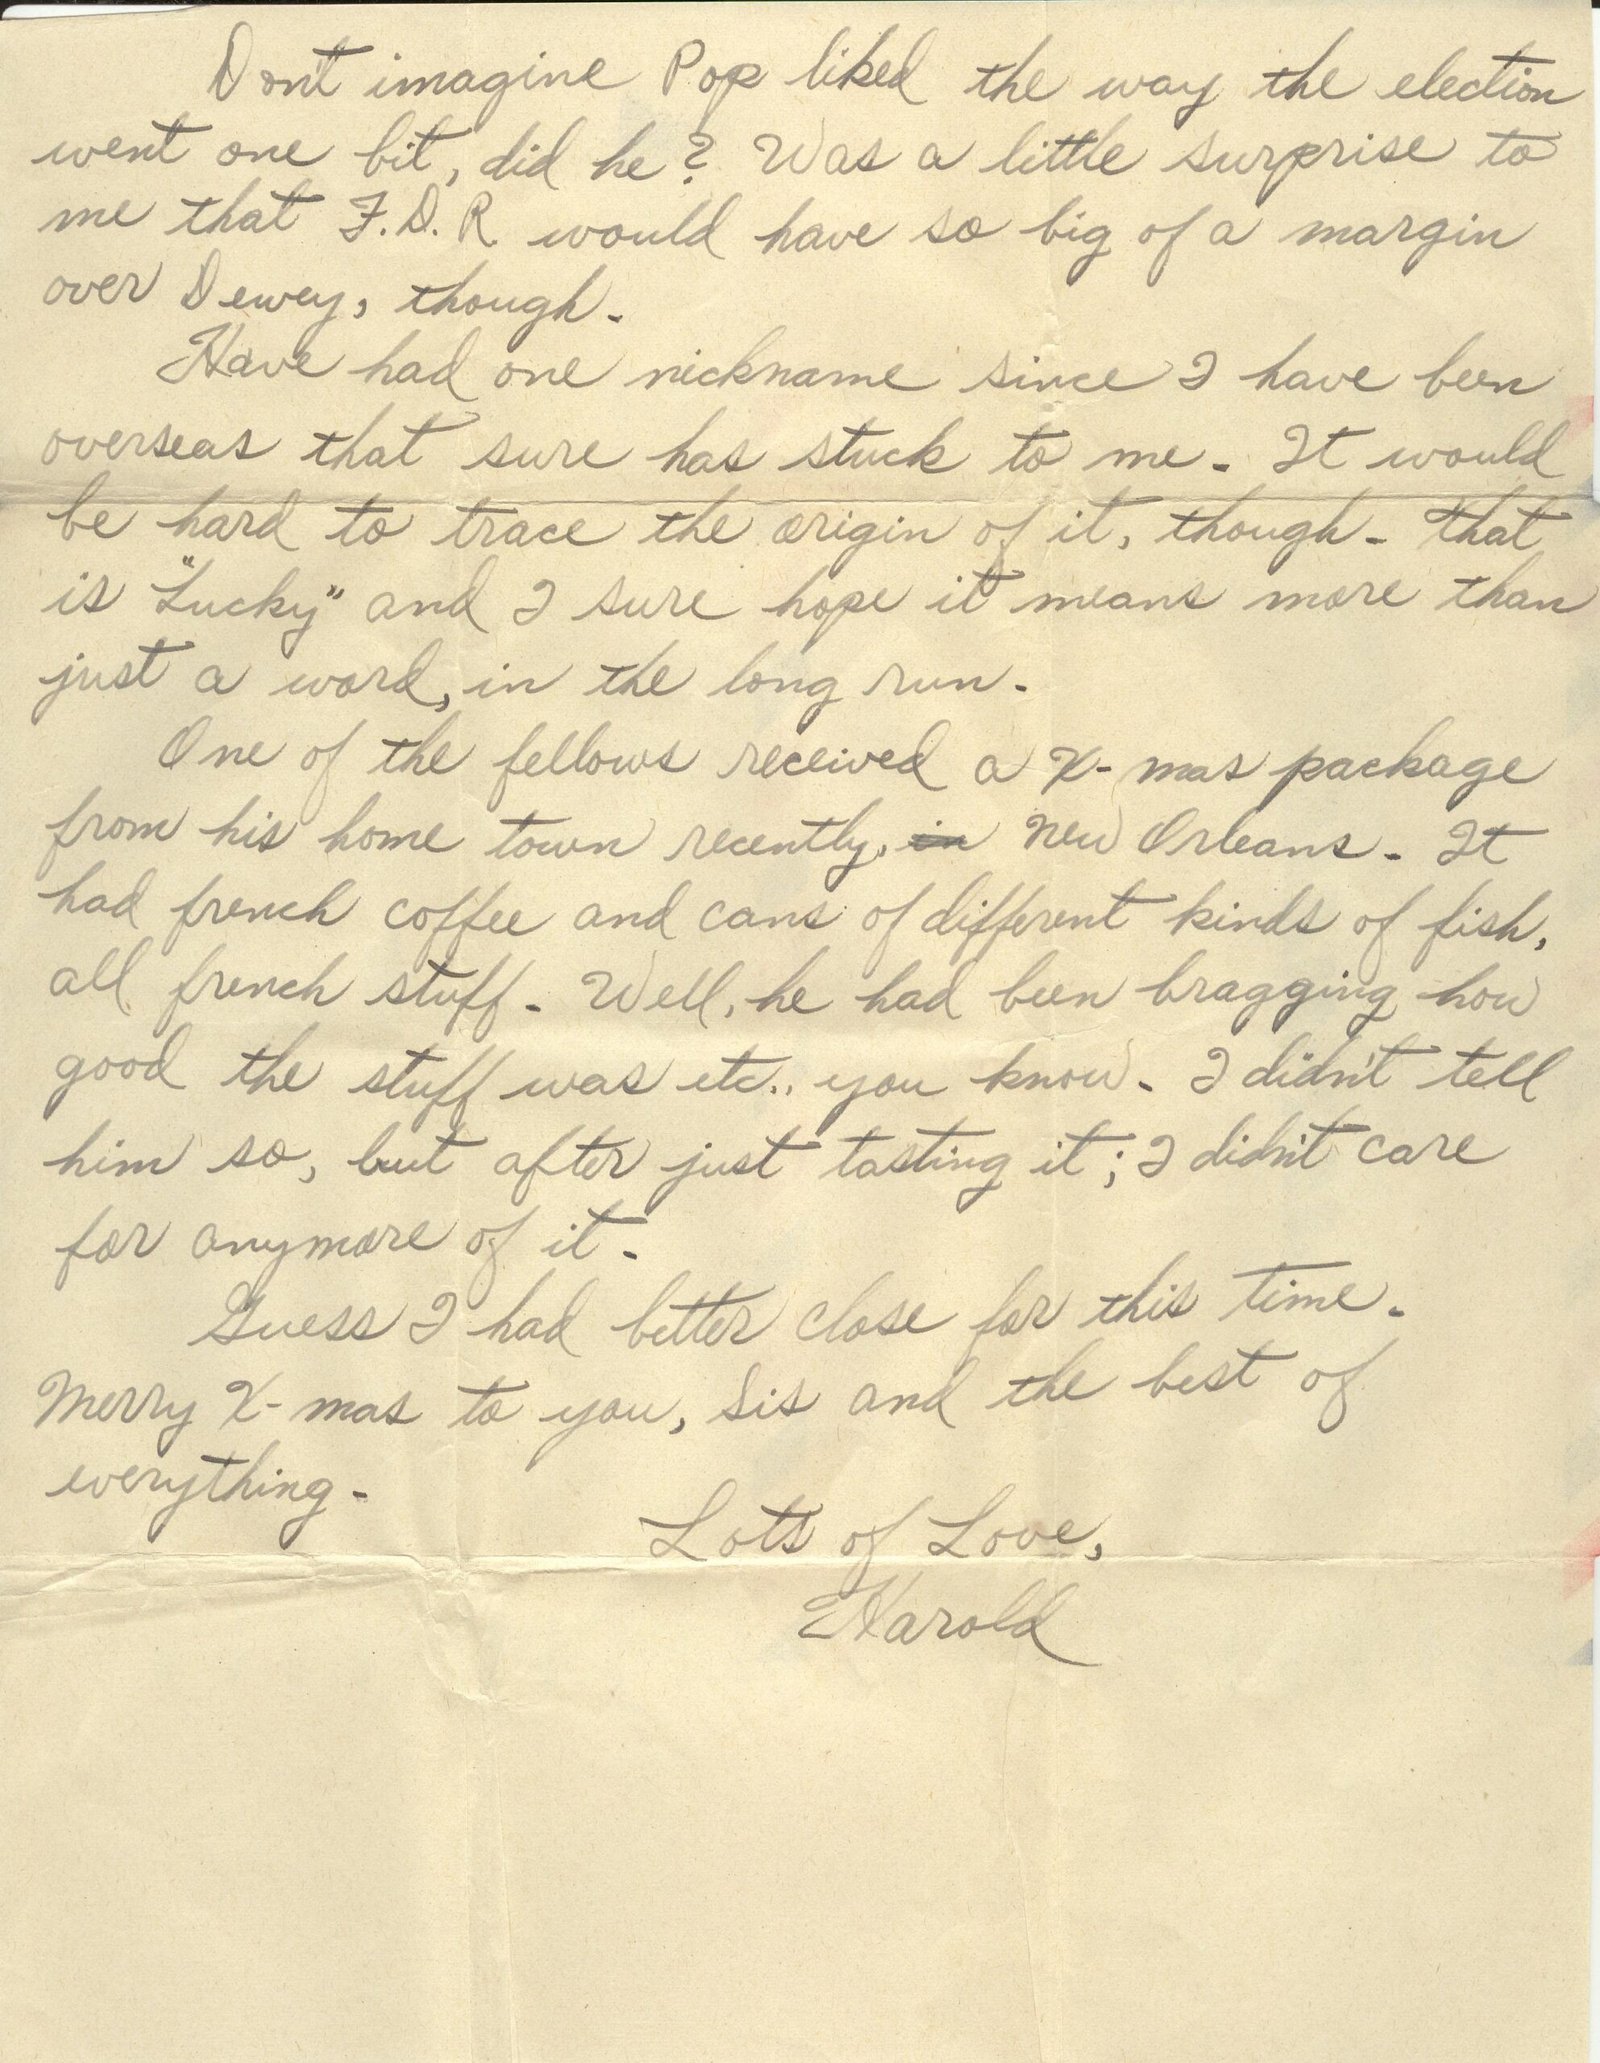 Don't imagine Pop liked the way the election
went one bit, did he? Was a little surprise to
me that F.D.R. would have so big of a margin
over Dewey, though.
Have had one nickname since I have been
overseas that sure has stuck to me. It would
be hard to trace the origin of it, though. That
is "Lucky" and I sure hope it means more than
just a word, in the long run.
One of the fellows received a X-mas package
from his home town recently, in New Orleans. It
had french coffee and cans of different kinds of fish,
all french stuff. Well, he had been bragging how
good the stuff was etc., you know. I didn't tell
him so, but after just tasting it; I didn't care
for anymore of it.
Guess I had better close for this time.
Merry X-mas to you, Sis and the best of
everything.
Lots of Love,
Harold